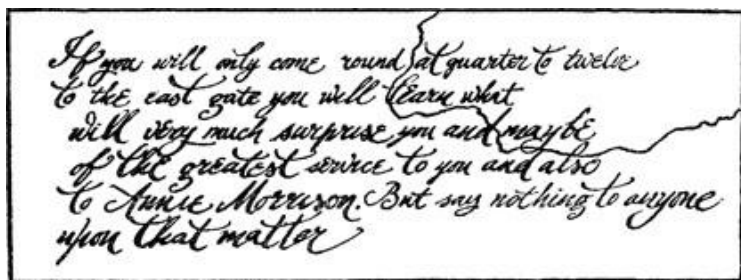 If you will only come round at quarter to twelve
to the east gate you will learn what
will very much surprise you and maybe
of the greatest service to you and also
to Annie Morrison. But say nothing to anyone
upon that matter